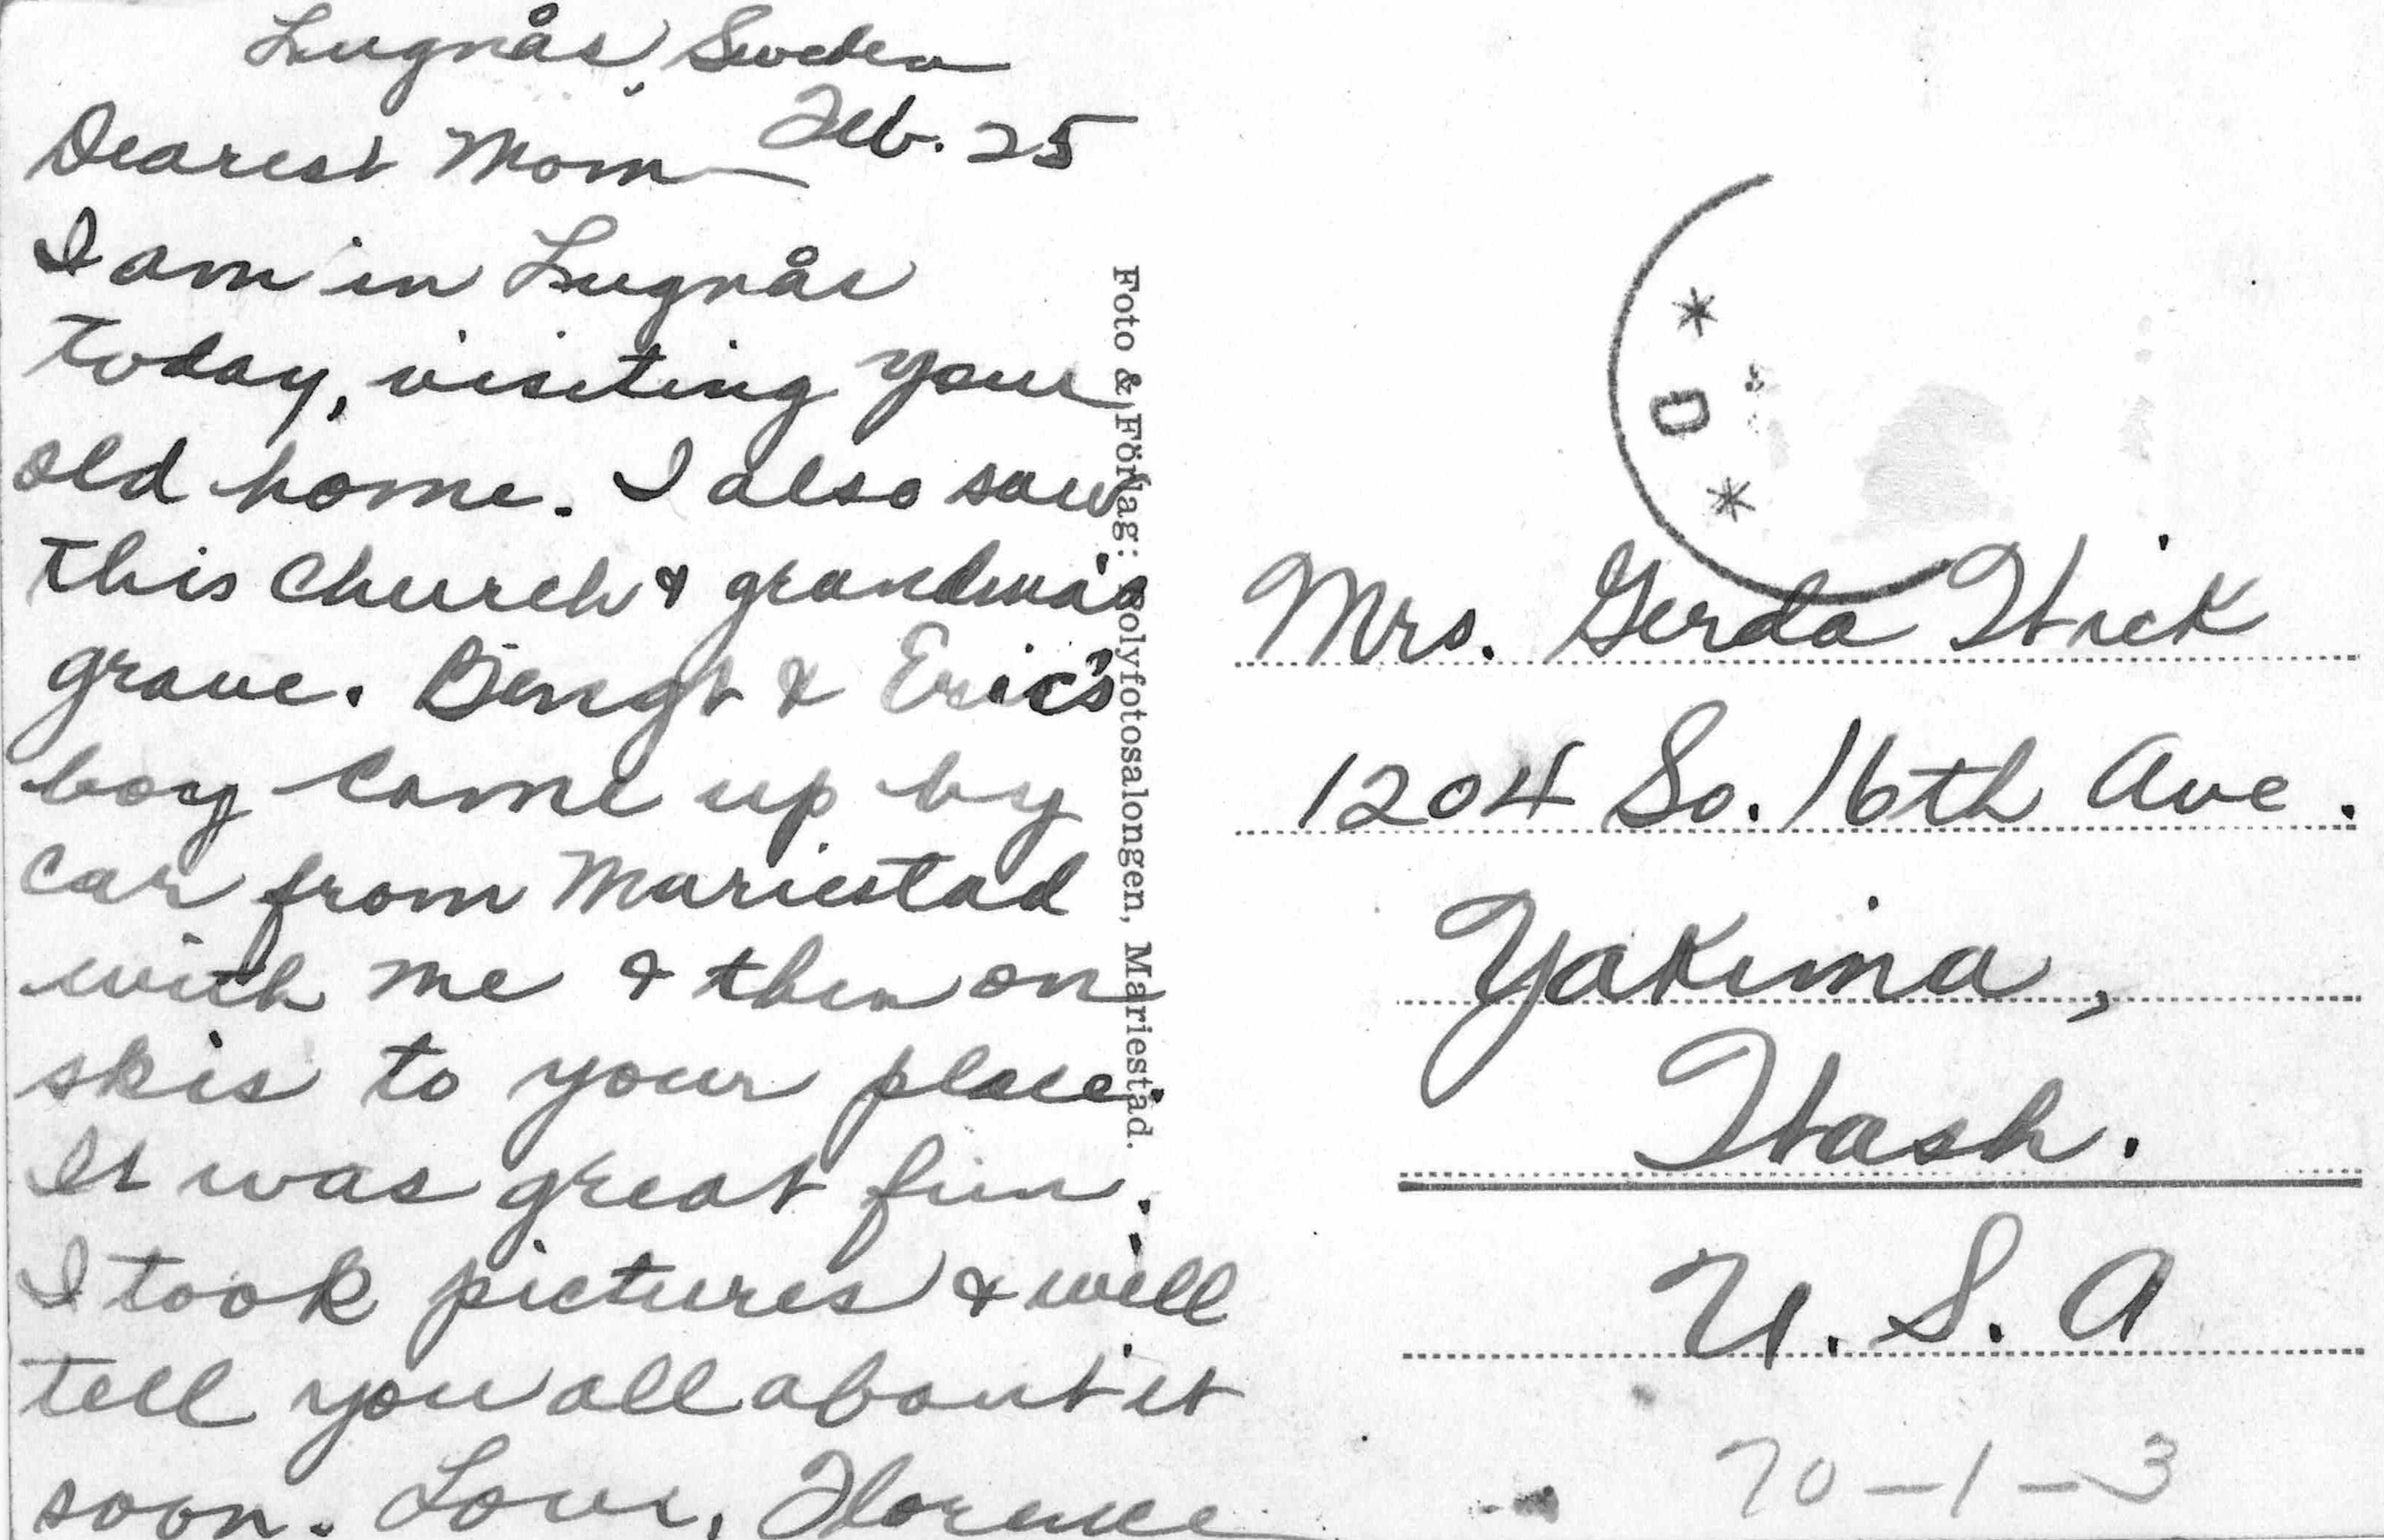 Lugnås, Sweden
Feb. 25
Dearest Mom —
I am in Lugnås
today, visiting your
old home. I also saw
this church & grandma's
grave. Bengt & Eric's
boy came up by
car from Mariestad
with me & then on
skis to your place.
It was great fun.
I took pictures & will
tell you all about it
soon. Love, Florence
Foto & Förlag: Polyfotosalongen, Mariestad.
* D *
Mrs. Gerda Wick
1204 So. 16th Ave.
Yakima,
Wash.
U. S. A
70-1-3